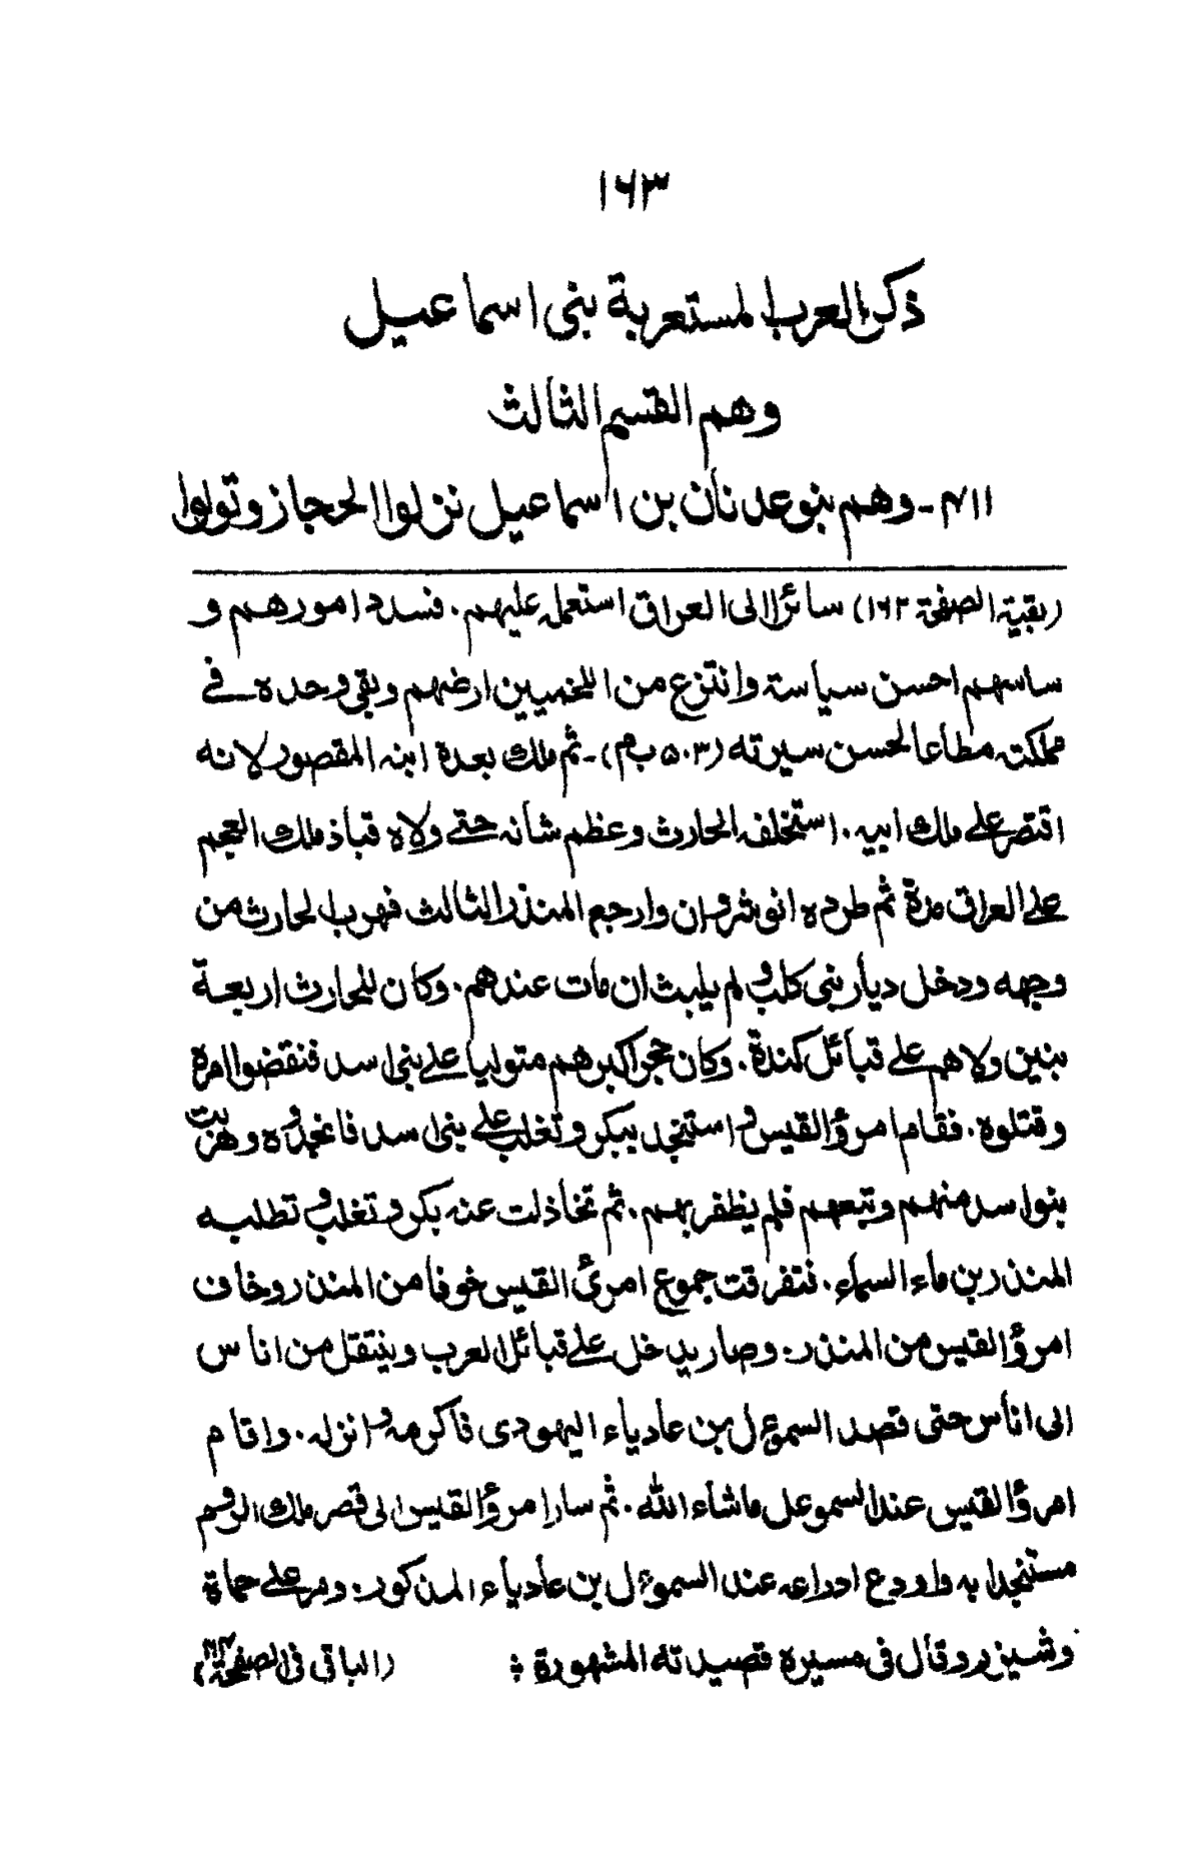 ١٦٣
ذكر العرب المستعربة بنى اسماعيل
وهم القسم الثالث
١١٤- وهم بنو عدنان بن اسماعيل نزلوا الحجاز وتولوا
(بقية الصفحة ١٦٢) سائرا الى العراق استعمله عليهم. فسدد امورهم و
ساسهم احسن سياسة وانتزع من اللخميين ارضهم وبقى وحده فے
مملكته مطاعا لحسن سيرته (٥٠٣ ب م)- ثم ملك بعدة ابنه المقصور لانه
اقتصر علے ملك ابيه. استخلفه الحارث وعظم شانه حتے ولاه قباذ ملك العجم
علے العراق مدة ثم طرده انوشروان وارجع المنذر الثالث فهرب الحارث من
وجهه ودخل ديار بنى كلب ولم يلبث ان مات عندهم. وكان للحارث اربعة
بنين ولاهم علے قبائل كندة. وكان حجر اكبرهم متوليا علے بنى اسد فنقضوا امرة
وقتلوه. فقام امرؤ القيس و استنجد ببكر وتغلب علے بنى اسد فانجدوه وهربت
بنو اسد منهم وتبعهم فلم يظفر بهم. ثم تخاذلت عنه بكر وتغلب و تطلبه
المنذر بن ماء السماء. فتفرقت جموع امرئ القيس خوفا من المنذر وخاف
امرؤ القيس من المنذر. وصار يدخل علے قبائل العرب وينتقل من اناس
الى اناس حتى قصد السموءل بن عادياء اليهودى فاكرمه و انزله. واقام
امرؤ القيس عند السموعل ماشاء الله. ثم سار امرؤ القيس الى قصر ملك الروم
مستنجدا به واودع ادراعه عند السموءل بن عادياء المذكور. ومر علے حماة
وشيزر وقال فى مسيره قصيدته المشهورة : (الباقى فى الصفحة ١٦٤)